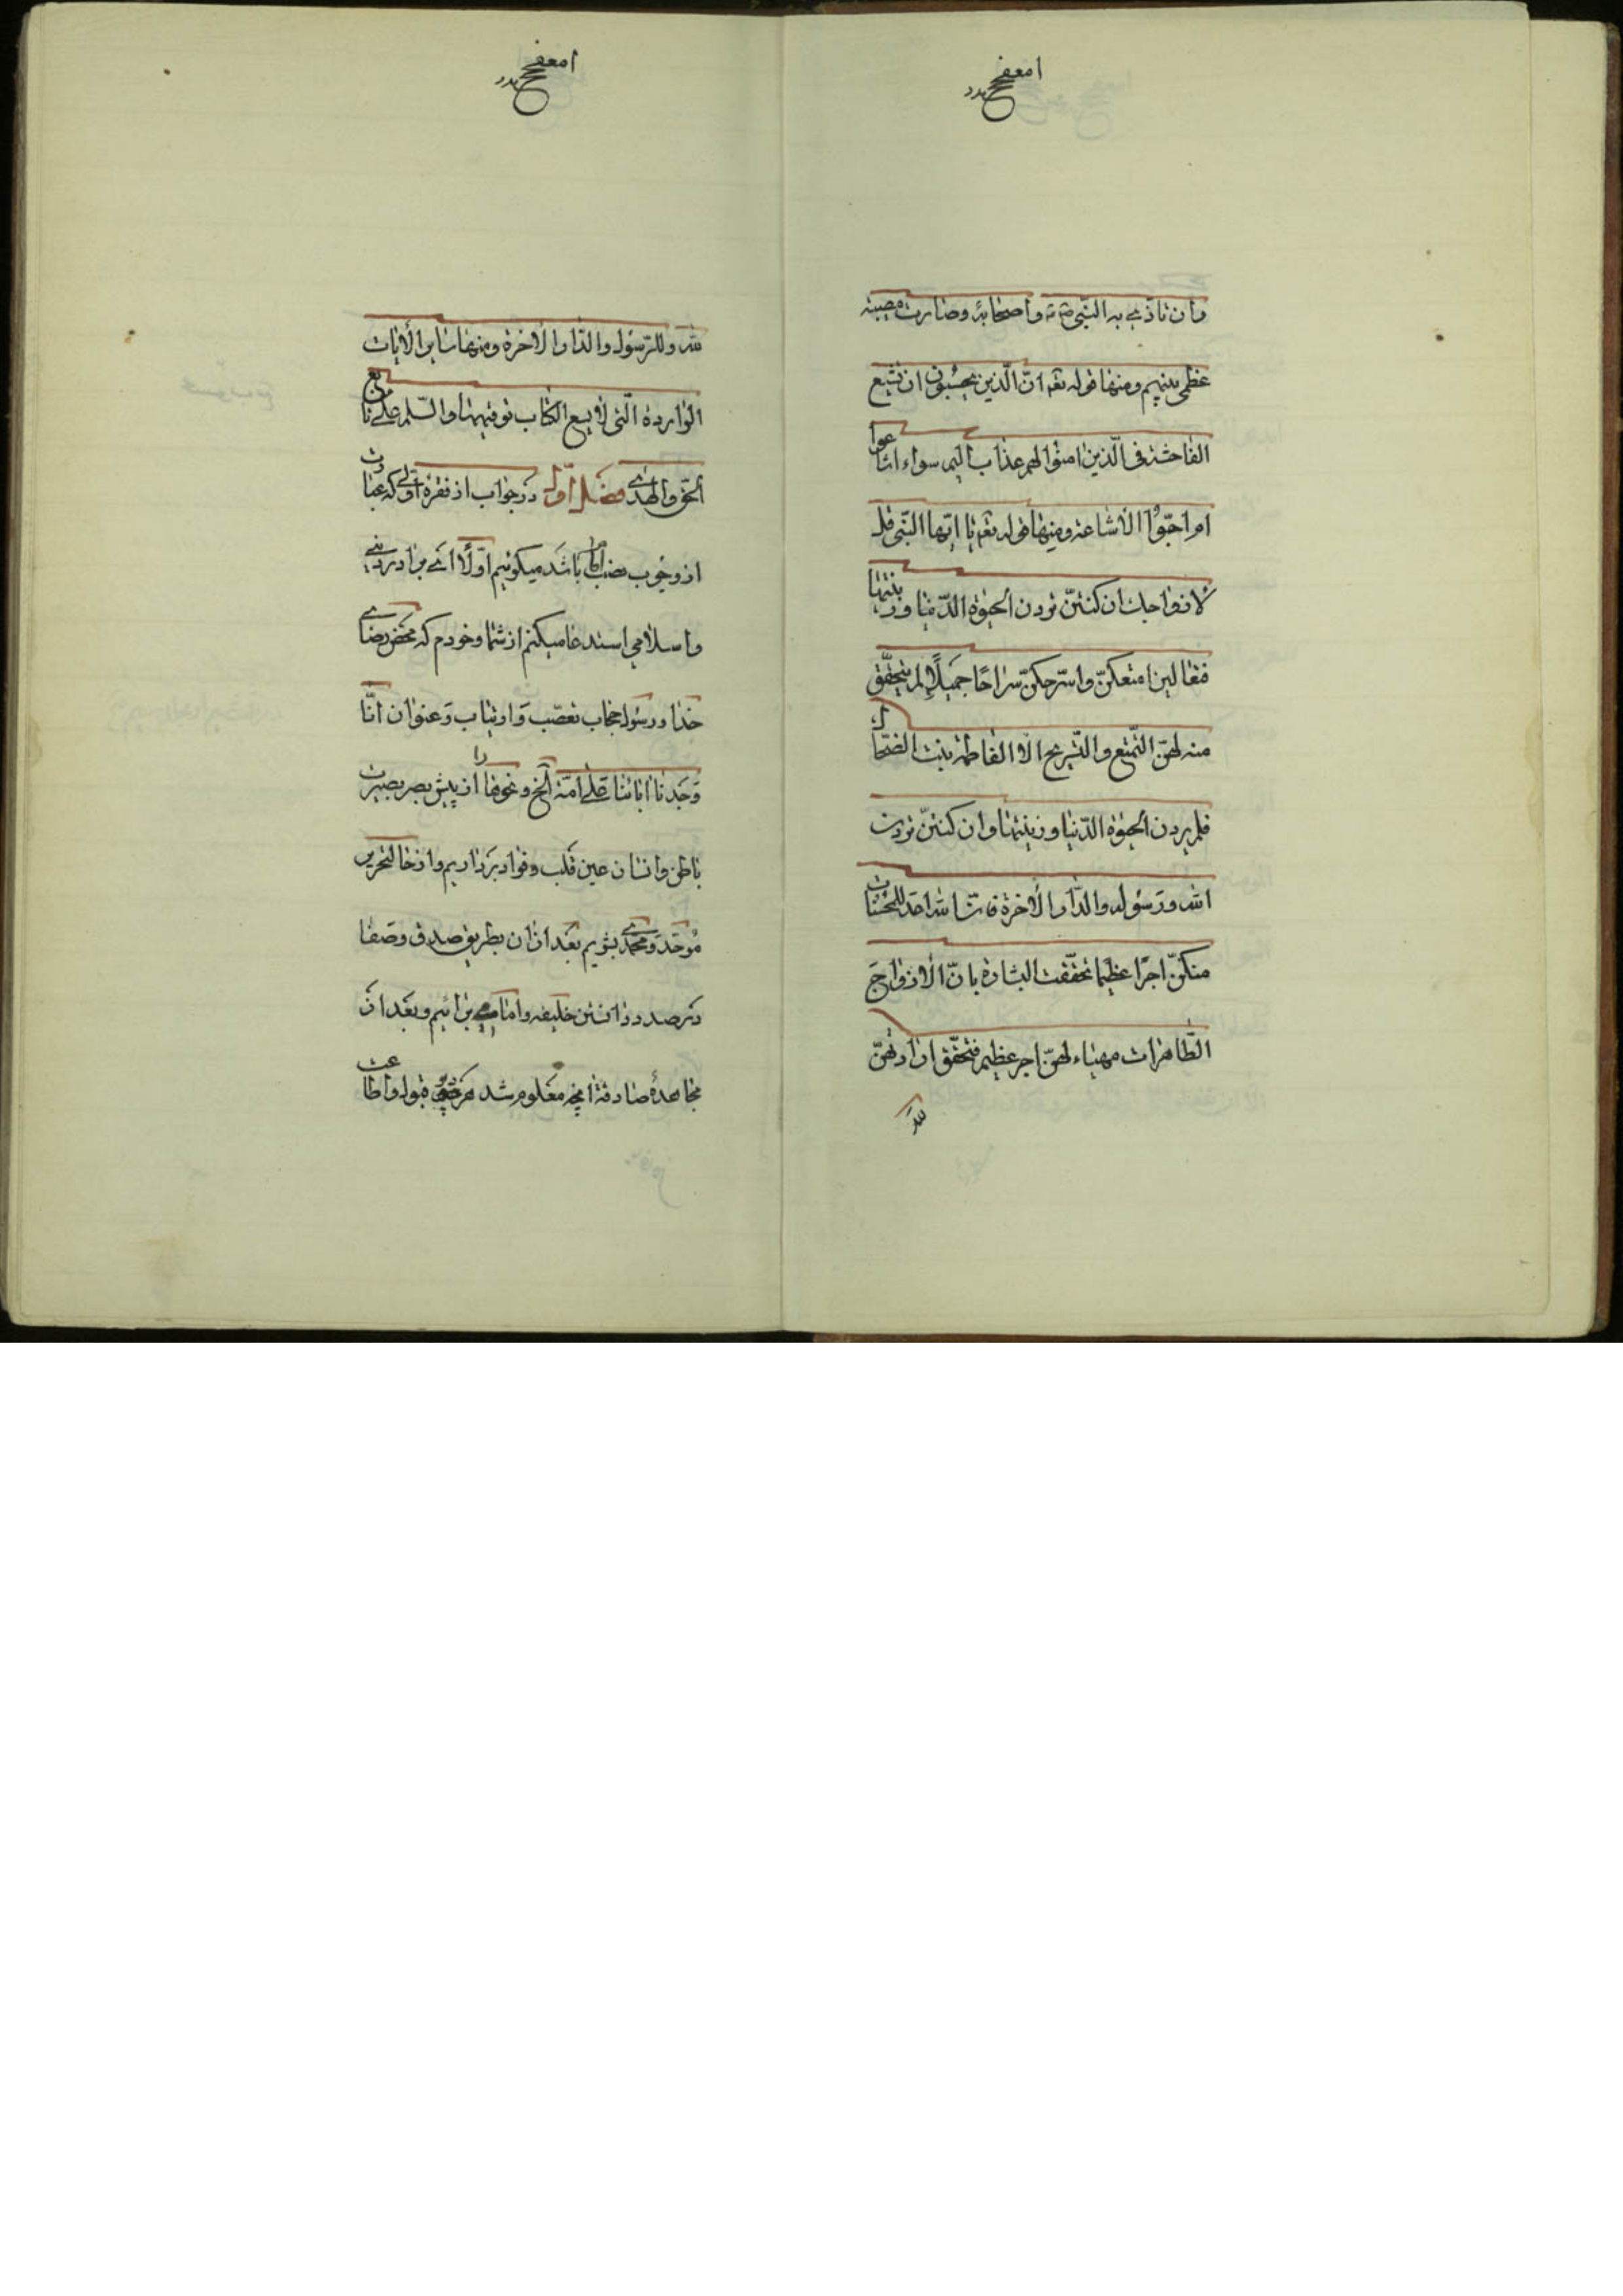 وان تاذی به النبی ص و اصحابه وصارت مصیبته
عظمی بینهم ومنها قوله تعه انّ الّذین یحبّون ان تشیع
الفاحشة فی الّذین امنوا لهم عذاب الیم سواء اشاعوا
ام احبّوا الاشاعة ومنها قوله تعه یا ایّها النّبی قل
لازواجك ان كنتنّ تردن الحیٰوة الدّنیا وزینتها
فتعالین امتعكنّ واسرّحكنّ سراحًا جمیلًا لم یتحقّق
منه لهنّ التّمتع والتّسریح الا لفاطمة بنت الضحّاك
فلم یردن الحیٰوة الدّنیا وزینتها وان كنتنّ تردن
الله ورسوله والدّار الاخرة فانّ الله اعدّ للمحسنات
منكنّ اجرًا عظیما تحقّقت البشارة بانّ الازواج
الطّاهرات مهیاء لهنّ اجر عظیم فتحقّق ارادتهنّ
لله
لله وللرّسول والدّار الاخرة ومنها سایر الایات
الواردة الّتی لا یسع الكتاب توفیتها والسّلم علی تابع
الحقّ والهدی فصل اوّل در جواب از فقره اولی كه عبارت
از وجوب نصب امام باشد میكوئیم اوّلًا ای برادر دینی
واسلامی استدعا میكنم از شما وخودم كه محض رضای
خدا ورسول حجاب تعصّب وارتیاب وعنوان انّا
وجدنا اٰبائنا علی امّة الخ ونحوها را از پیش بصر بصیرت
باطن وانسان عین قلب وفواد برداریم واز حال تحریر
موحّد ومحمّدی بشویم بعد ازان بطریق صدق وصفا
در صدد دانستن خلیفه وامامی برائیم وبعد از
مجاهدهٔ صادقة انچه معلوم شد قبول واطاعت